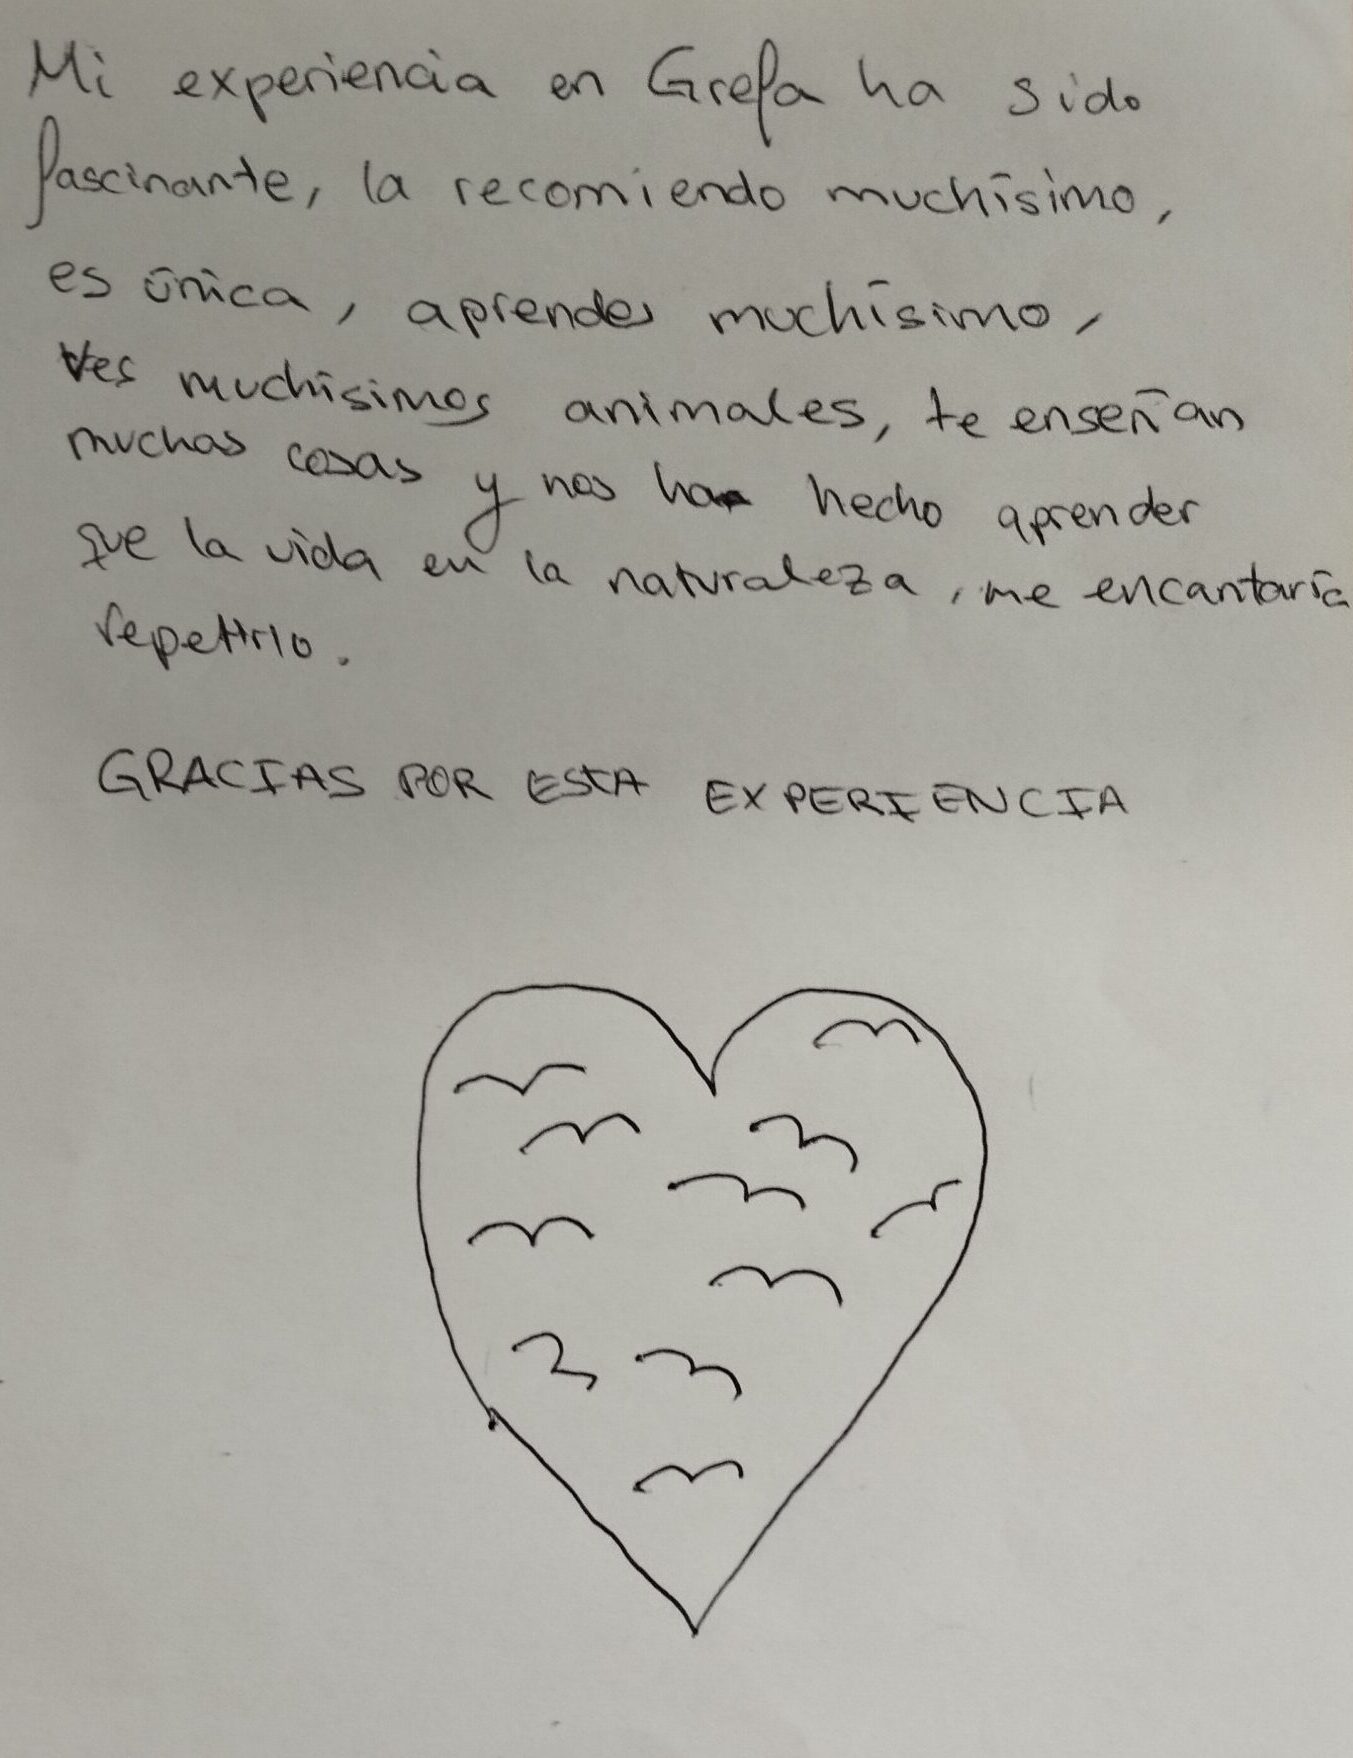 Mi experiencia en Grefa ha sido
fascinante, la recomiendo muchísimo,
es única, aprendes muchísimo,
Ves muchísimos animales, te enseñan
muchas cosas y nos han hecho aprender
que la vida en la naturaleza, me encantaría
repetirlo.
GRACIAS POR ESTA EXPERIENCIA